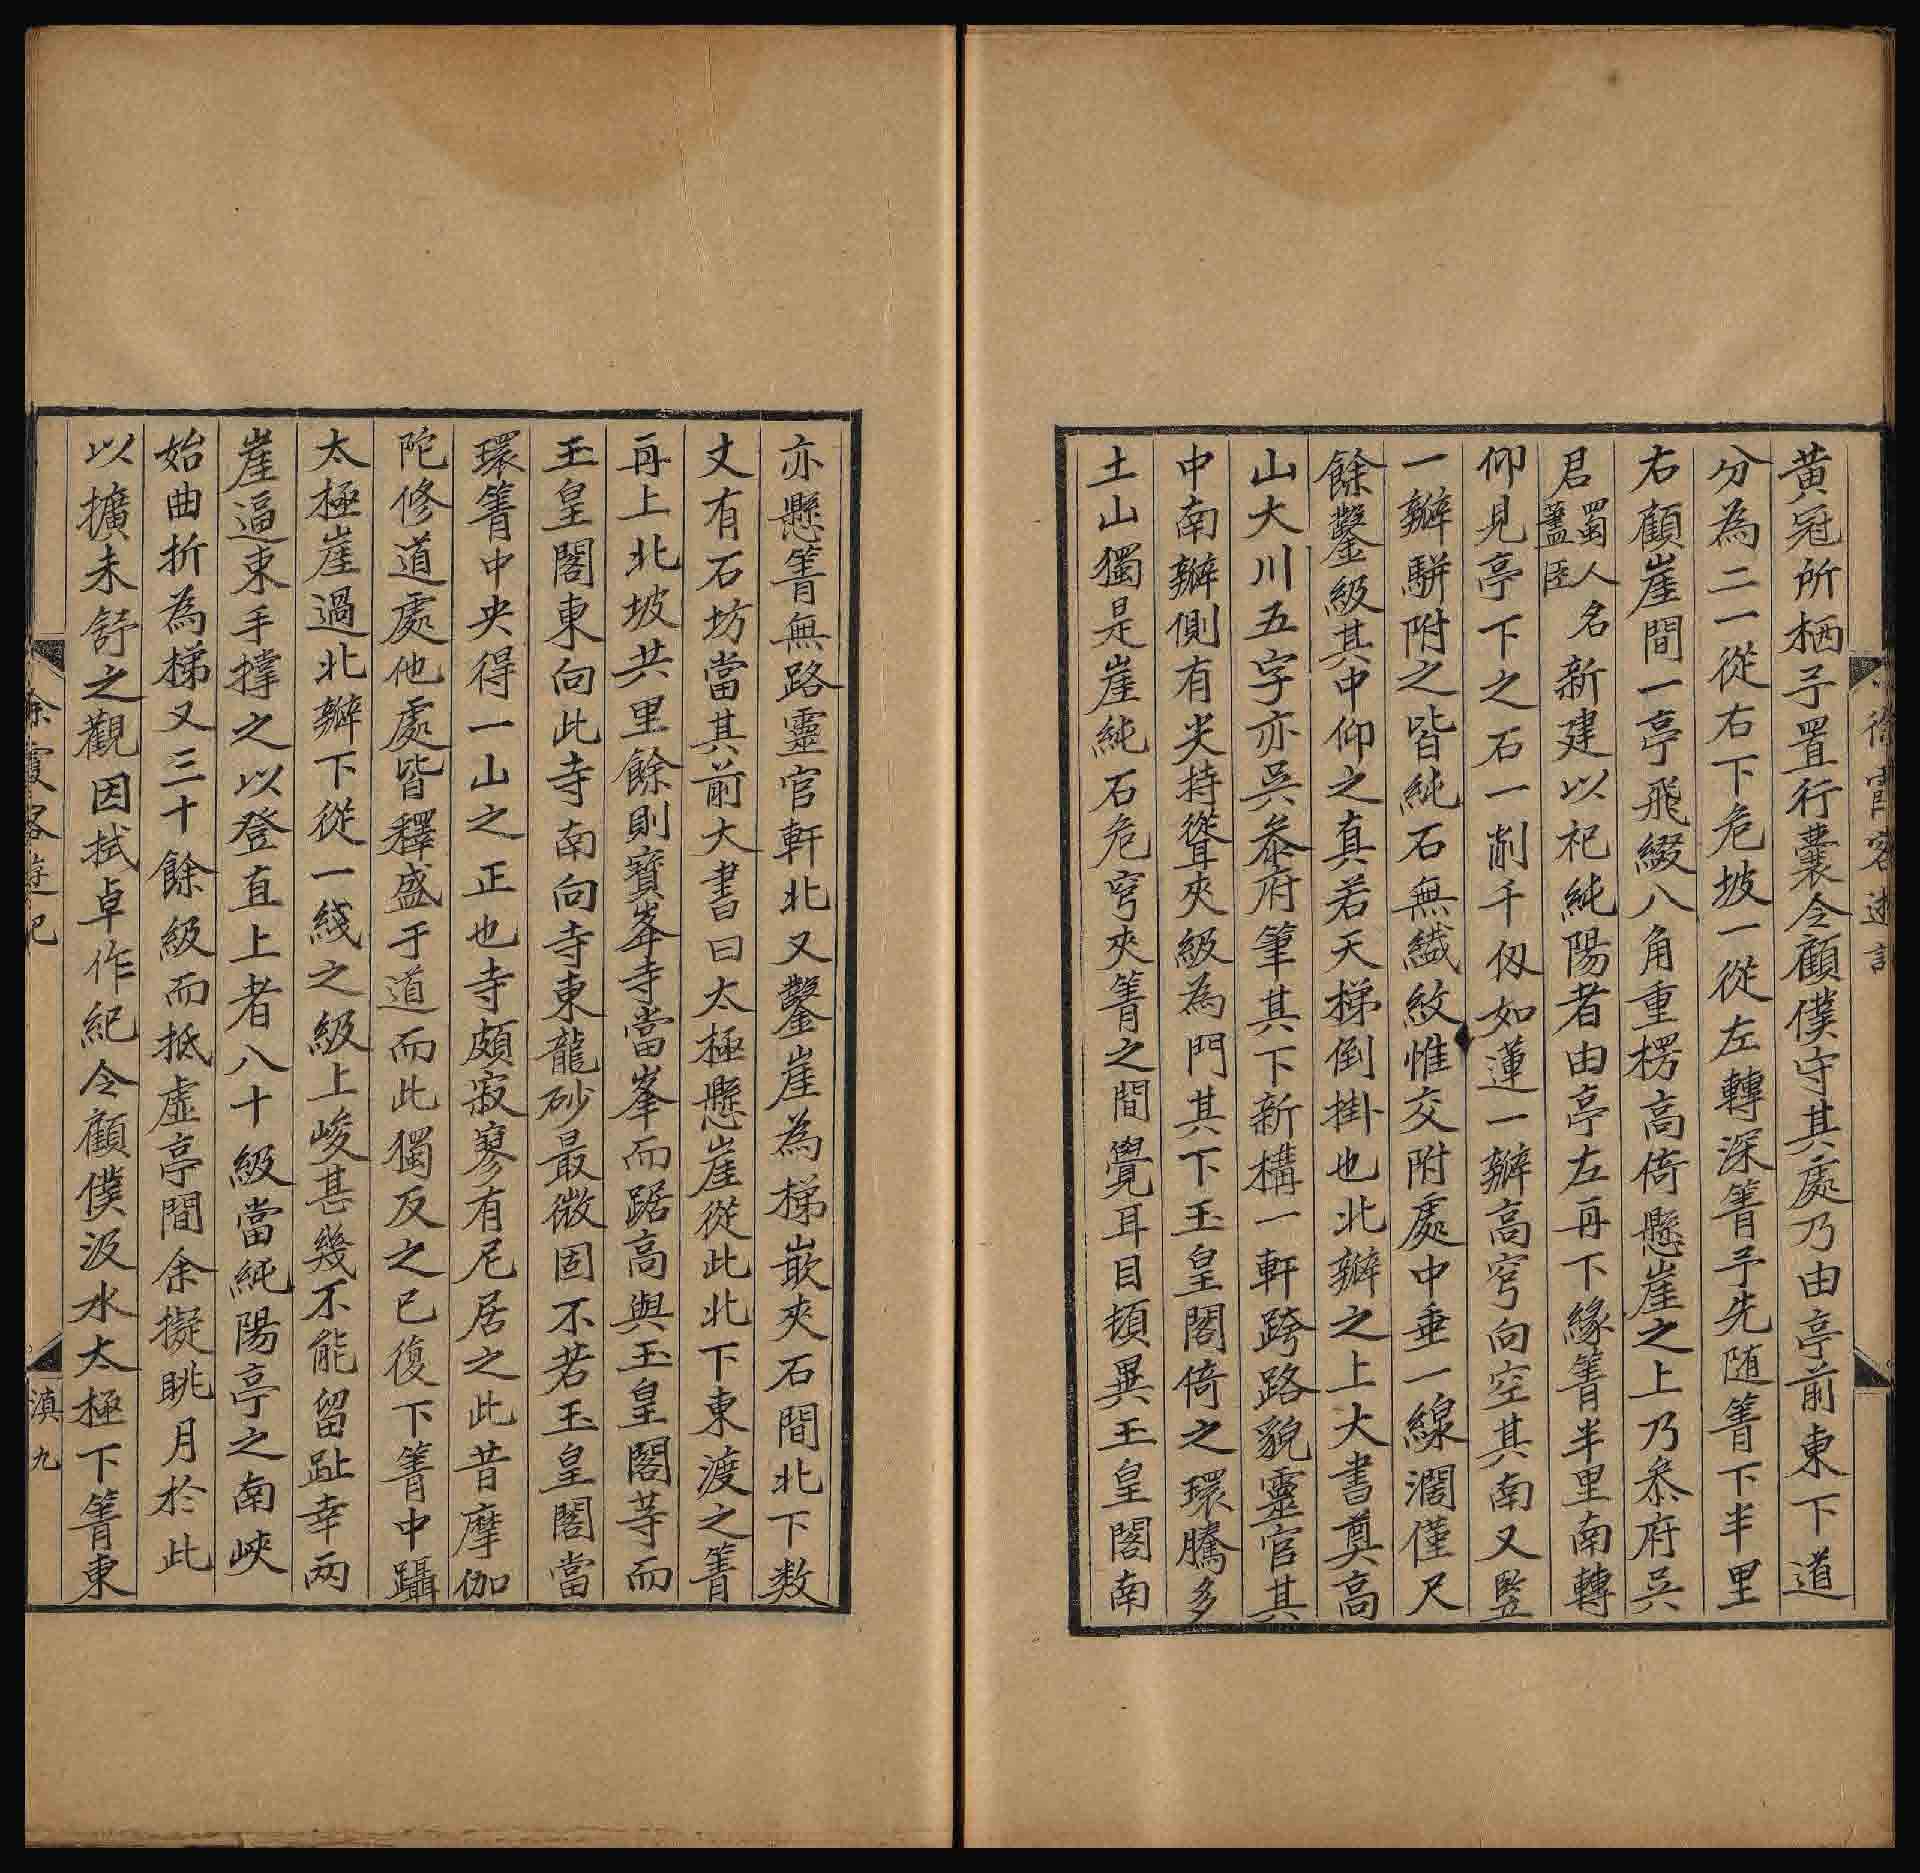 黃冠所栖予置行囊令顧僕守其處乃由亭前東下道
分為二一從右下危坡一從左轉深箐予先随箐下半里
右顧崖間一亭飛綴八角重楞高倚懸崖之上乃叅府吳
君蜀人名蓋臣新建以祀純陽者由亭左再下緣箐半里南轉
仰見亭下之石一削千仭如蓮一瓣高穹向空其南又竪
一瓣騈附之皆純石無纎紋惟交附處中垂一線濶僅尺
餘鑿級其中仰之真若天梯倒掛也北瓣之上大書奠高
山大川五字亦吳叅府筆其下新構一軒跨路貌靈官其
中南瓣側有尖持聳夾級為門其下玉皇閣倚之環騰多
土山獨是崖純石危穹夾箐之間覺耳目頓異玉皇閣南
亦懸箐無路靈官軒北又鑿崖為梯嵌夾石間北下数
丈有石坊當其前大書曰太極懸崖從此北下東渡之箐
再上北坡共里餘則寶峯寺當峯而踞高與玉皇閣等而
玉皇閣東向此寺南向寺東龍砂最微固不若玉皇閣當
環箐中央得一山之正也寺頗寂寥有尼居之此昔摩伽
陀修道處他處皆釋盛于道而此獨反之已復下箐中躡
太極崖過北瓣下從一綫之級上峻甚幾不能留趾幸兩
崖逼東手撐之以登直上者八十級當純陽亭之南峽
始曲折為梯又三十餘級而抵虛亭間余擬眺月於此
以擴未舒之觀因拭卓作紀令顧僕汲水太極下箐東
徐霞客遊記
滇九